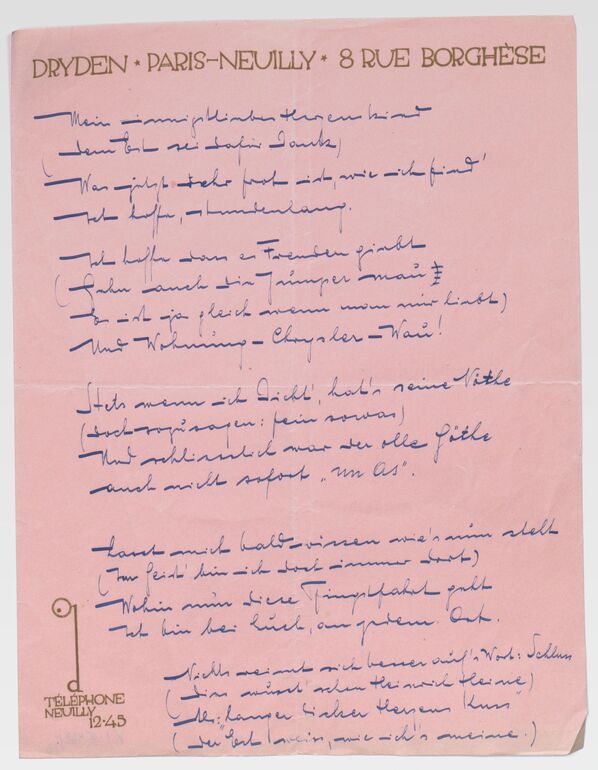 DRYDEN * PARIS-NEUILLY * 8 RUE BORGHÈSE
Mein innigstliebes Herzenskind
(dem Est sei dafür Dank)
Was jetzt sehr froh ist, wie ich find'
Ich hoffe, stundenlang.
Ich hoffe dass es Freuden giebt
(Sehn auch die Jumper mau
Es ist ja gleich wenn man mir liebt)
Und Wohnung - Chrysler - Wau!
Stets wenn ich Dicht', hat's seine Nöthe
(doch sozusagen: fein sowas)
Und schliesslich war der olle Göthe
auch nicht sofort „un As".
Lasst mich bald wissen wie's nun stellt
(Im Geist' bin ich doch immer dort)
Wohin nun diese Pfingstfahrt geht
Ich bin bei Euch, an jedem Ort.
Nichts reimt sich besser auf's Wort: Schluss
(Dies wusst' schon Heinrich Heine)
Als: langer dicker Herzens Kuss
(der Est weiss, wie ich's meine.)
TÉLÉPHONE
NEUILLY
12-45